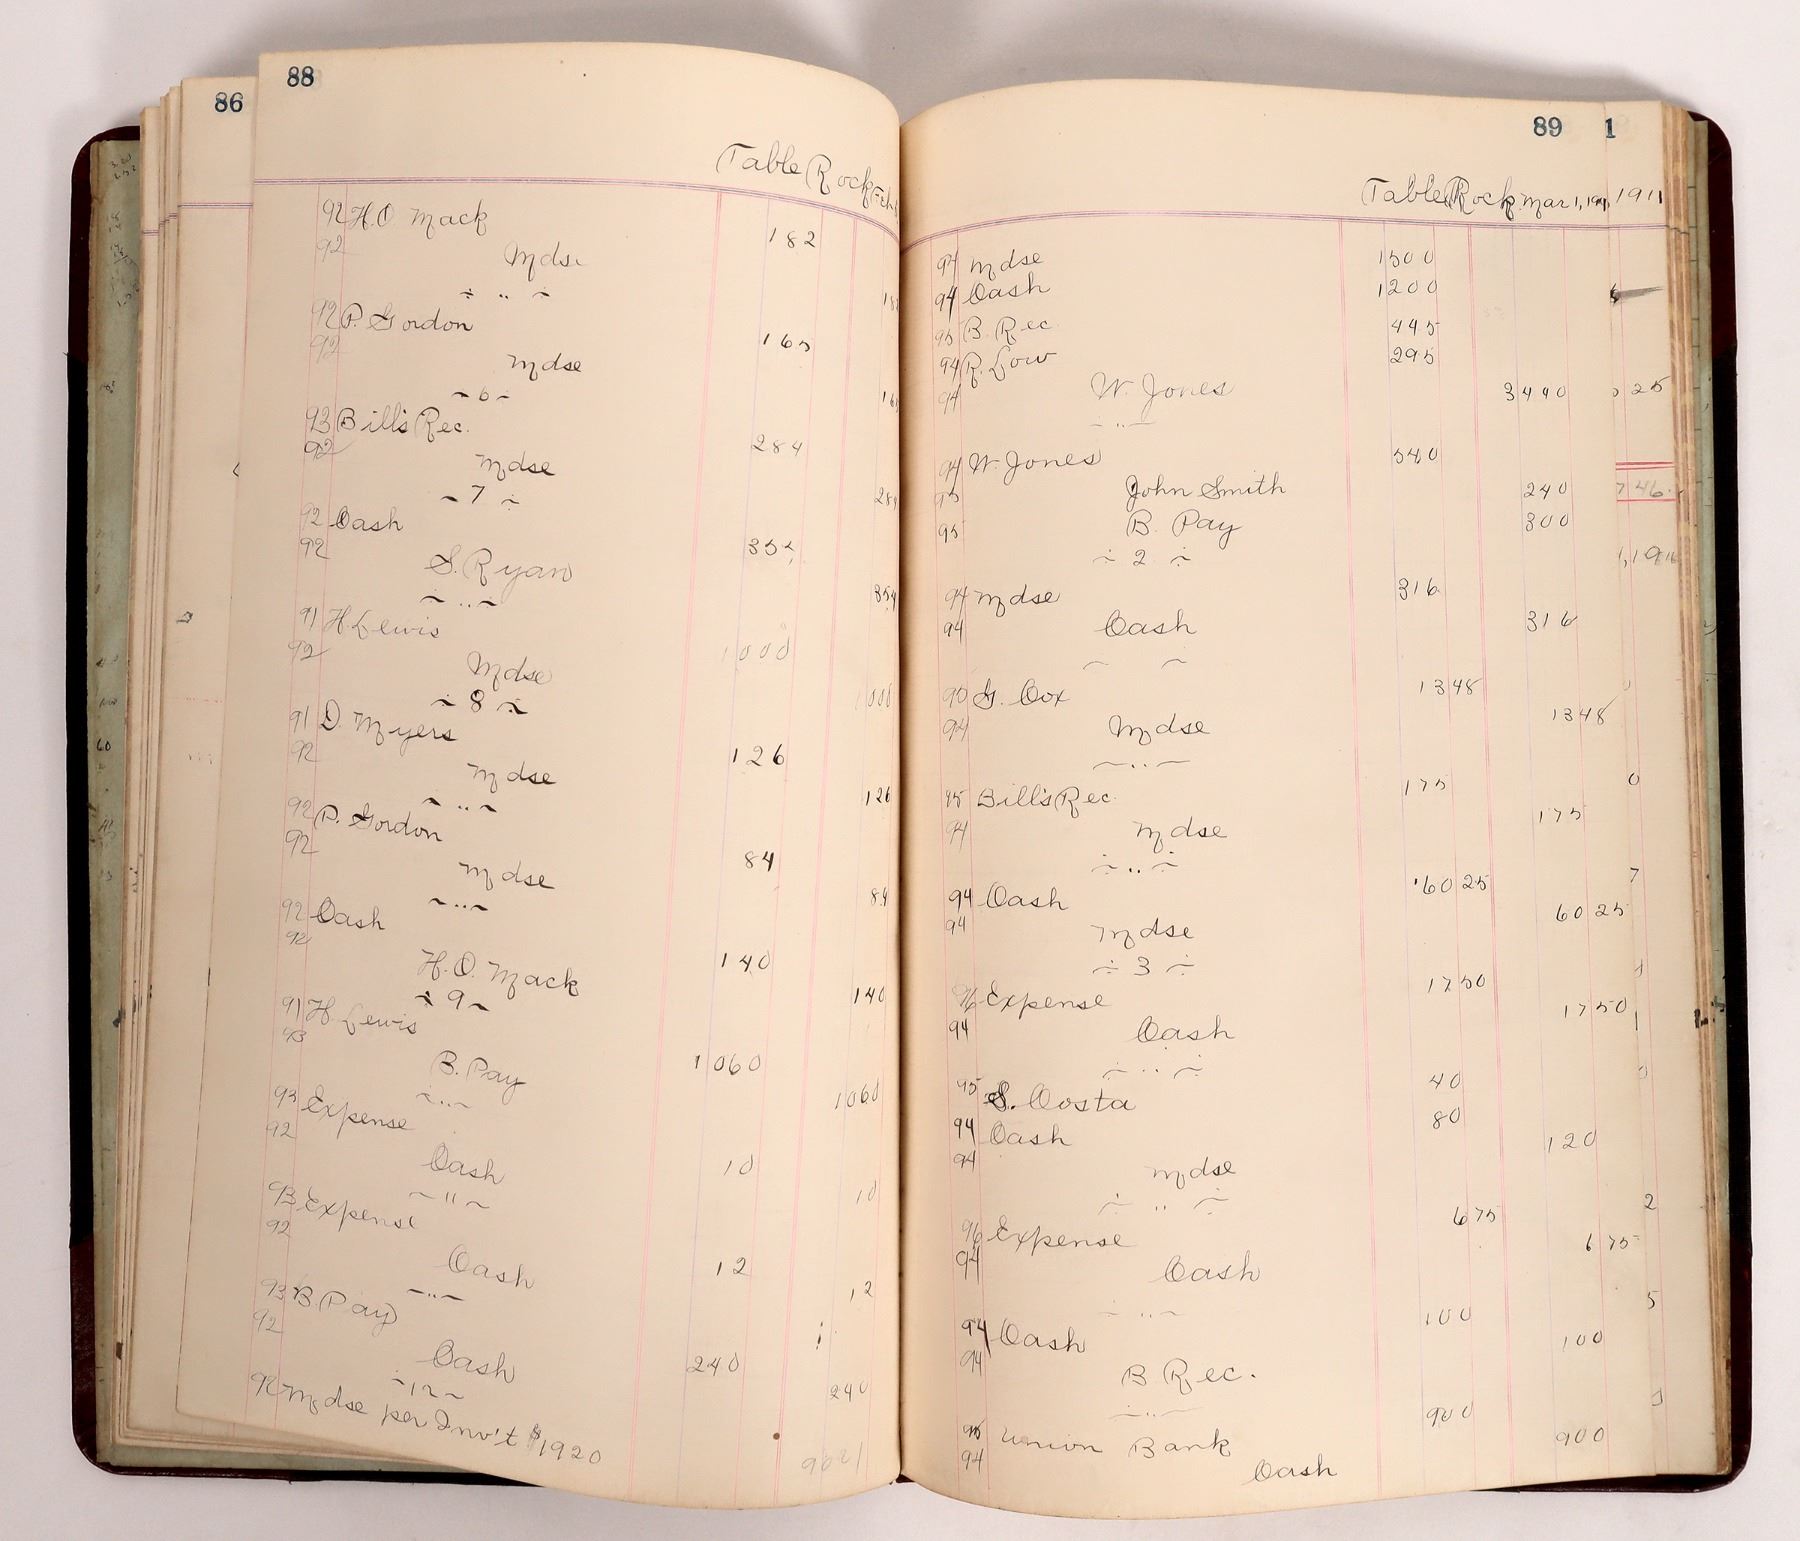 86
88
Table Rock Feb
92 H.O. Mack 182
92 Mdse 18
" 
92 P. Gordon 165
92 Mdse 16
6
93 Bill's Rec. 284
92 Mdse 284
7
92 Cash 354
92 S. Ryan 354
"
91 H. Lewis 1000
92 Mdse 1000
8
91 D. Myers 126
92 Mdse 126
"
92 P. Gordon 84
92 Mdse 84
"
92 Cash 140
92 H.O. Mack 140
9
91 H. Lewis 1060
93 B. Pay 1060
"
93 Expense 10
92 Cash 10
"
93 Expense 12
92 Cash 12
"
93 B. Pay 240
92 Cash 240
12
92 Mdse per Inv't $1920
89
Table Rock Mar 1, 1911
94 Mdse 1500
94 Cash 1200
95 B. Rec. 445
94 R. Low 295
94 W. Jones 3440
"
94 W. Jones 540
95 John Smith 240
95 B. Pay 300
2
94 Mdse 316
94 Cash 316
95 G. Cox 13 48
94 Mdse 13 48
"
95 Bill's Rec. 175
94 Mdse 175
"
94 Cash 60 25
94 Mdse 60 25
3
96 Expense 17 50
94 Cash 17 50
"
95 S. Costa 40
94 Cash 80
94 Mdse 120
"
96 Expense 6 75
94 Cash 6 75
"
94 Cash 100
94 B Rec. 100
"
95 Union Bank 900
94 Cash 900
1
1911
25
746